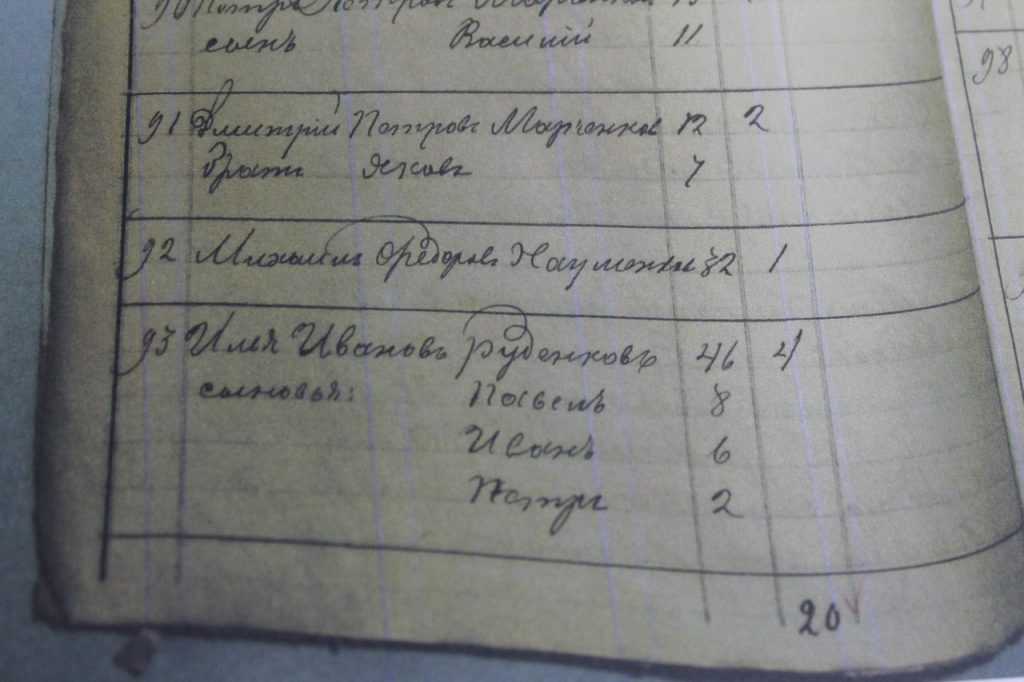 90 Петръ Петровъ Марченков 13
сынъ Василій 11
91 Дмитрій Петровъ Марченков 12 2
братъ Яковъ 7
92 Михаилъ Федоровъ Науменко 32 1
93 Илья Ивановъ Руденковъ 46 4
сыновья: Павелъ 8
Иванъ 6
Петръ 2
20
98